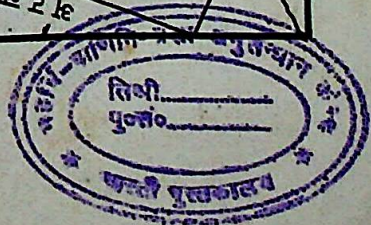 महर्षि-पाणिनि-वैदिक अनुसन्धान केन्द्र
तिथी..............
पु०सं०..............
भारती पुस्तकालय